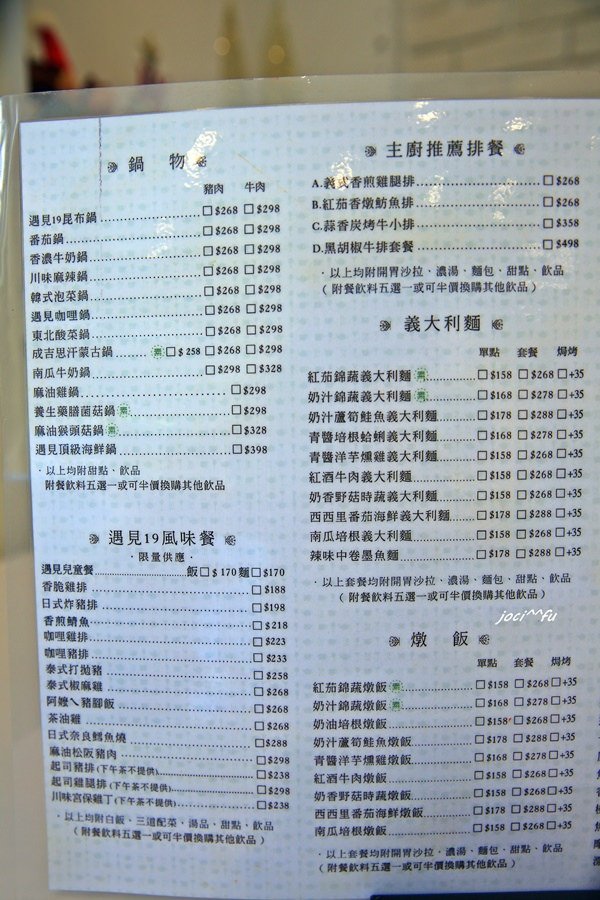 鍋 物
豬肉 牛肉
遇見19昆布鍋 □$268 □$298
番茄鍋 □$268 □$298
香濃牛奶鍋 □$268 □$298
川味麻辣鍋 □$268 □$298
韓式泡菜鍋 □$268 □$298
遇見咖哩鍋 □$268 □$298
東北酸菜鍋 □$268 □$298
成吉思汗蒙古鍋 素 □$258 □$268 □$298
南瓜牛奶鍋 □$298 □$328
麻油雞鍋 □$298
養生藥膳菌菇鍋 素 □$298
麻油猴頭菇鍋 素 □$328
遇見頂級海鮮鍋 □$398
·以上均附甜點、飲品
附餐飲料五選一或可半價換購其他飲品
遇見19風味餐
·限量供應·
遇見兒童餐 飯□$170 麵□$170
香脆雞排 □$188
日式炸豬排 □$198
香煎鯖魚 □$218
咖哩雞排 □$223
咖哩豬排 □$233
泰式打拋豬 □$258
泰式椒麻雞 □$268
阿嬤ㄟ豬腳飯 □$268
茶油雞 □$268
日式奈良鱈魚燒 □$288
麻油松阪豬肉 □$298
起司豬排(下午茶不提供) □$238
起司雞腿排(下午茶不提供) □$298
川味宮保雞丁(下午茶不提供) □$238
·以上均附白飯、三道配菜、湯品、甜點、飲品
(附餐飲料五選一或可半價換購其他飲品)
主廚推薦排餐
A.義式香煎雞腿排 □$268
B.紅茄香燉魴魚排 □$268
C.蒜香炭烤牛小排 □$358
D.黑胡椒牛排套餐 □$498
·以上均附開胃沙拉、濃湯、麵包、甜點、飲品
(附餐飲料五選一或可半價換購其他飲品)
義大利麵
單點 套餐 焗烤
紅茄錦蔬義大利麵 素 □$158 □$268 □+35
奶汁錦蔬義大利麵 素 □$168 □$278 □+35
奶汁蘆筍鮭魚義大利麵 □$178 □$288 □+35
青醬培根蛤蜊義大利麵 □$168 □$278 □+35
青醬洋芋燻雞義大利麵 □$158 □$268 □+35
紅酒牛肉義大利麵 □$158 □$268 □+35
奶香野菇時蔬義大利麵 □$158 □$268 □+35
西西里番茄海鮮義大利麵 □$178 □$288 □+35
南瓜培根義大利麵 □$158 □$268 □+35
辣味中卷墨魚麵 □$178 □$288 □+35
·以上套餐均附開胃沙拉、濃湯、麵包、甜點、飲品
(附餐飲料五選一或可半價換購其他飲品)
joci^^fu
燉 飯
單點 套餐 焗烤
紅茄錦蔬燉飯 素 □$158 □$268 □+35
奶汁錦蔬燉飯 素 □$168 □$268 □+35
奶油培根燉飯 □$158 □$268 □+35
奶汁蘆筍鮭魚燉飯 □$178 □$288 □+35
青醬洋芋燻雞燉飯 □$168 □$278 □+35
紅酒牛肉燉飯 □$158 □$268 □+35
奶香野菇時蔬燉飯 □$158 □$268 □+35
西西里番茄海鮮燉飯 □$178 □$288 □+35
南瓜培根燉飯 □$158 □$268 □+35
·以上套餐均附開胃沙拉、濃湯、麵包、甜點、飲品
(附餐飲料五選一或可半價換購其他飲品)